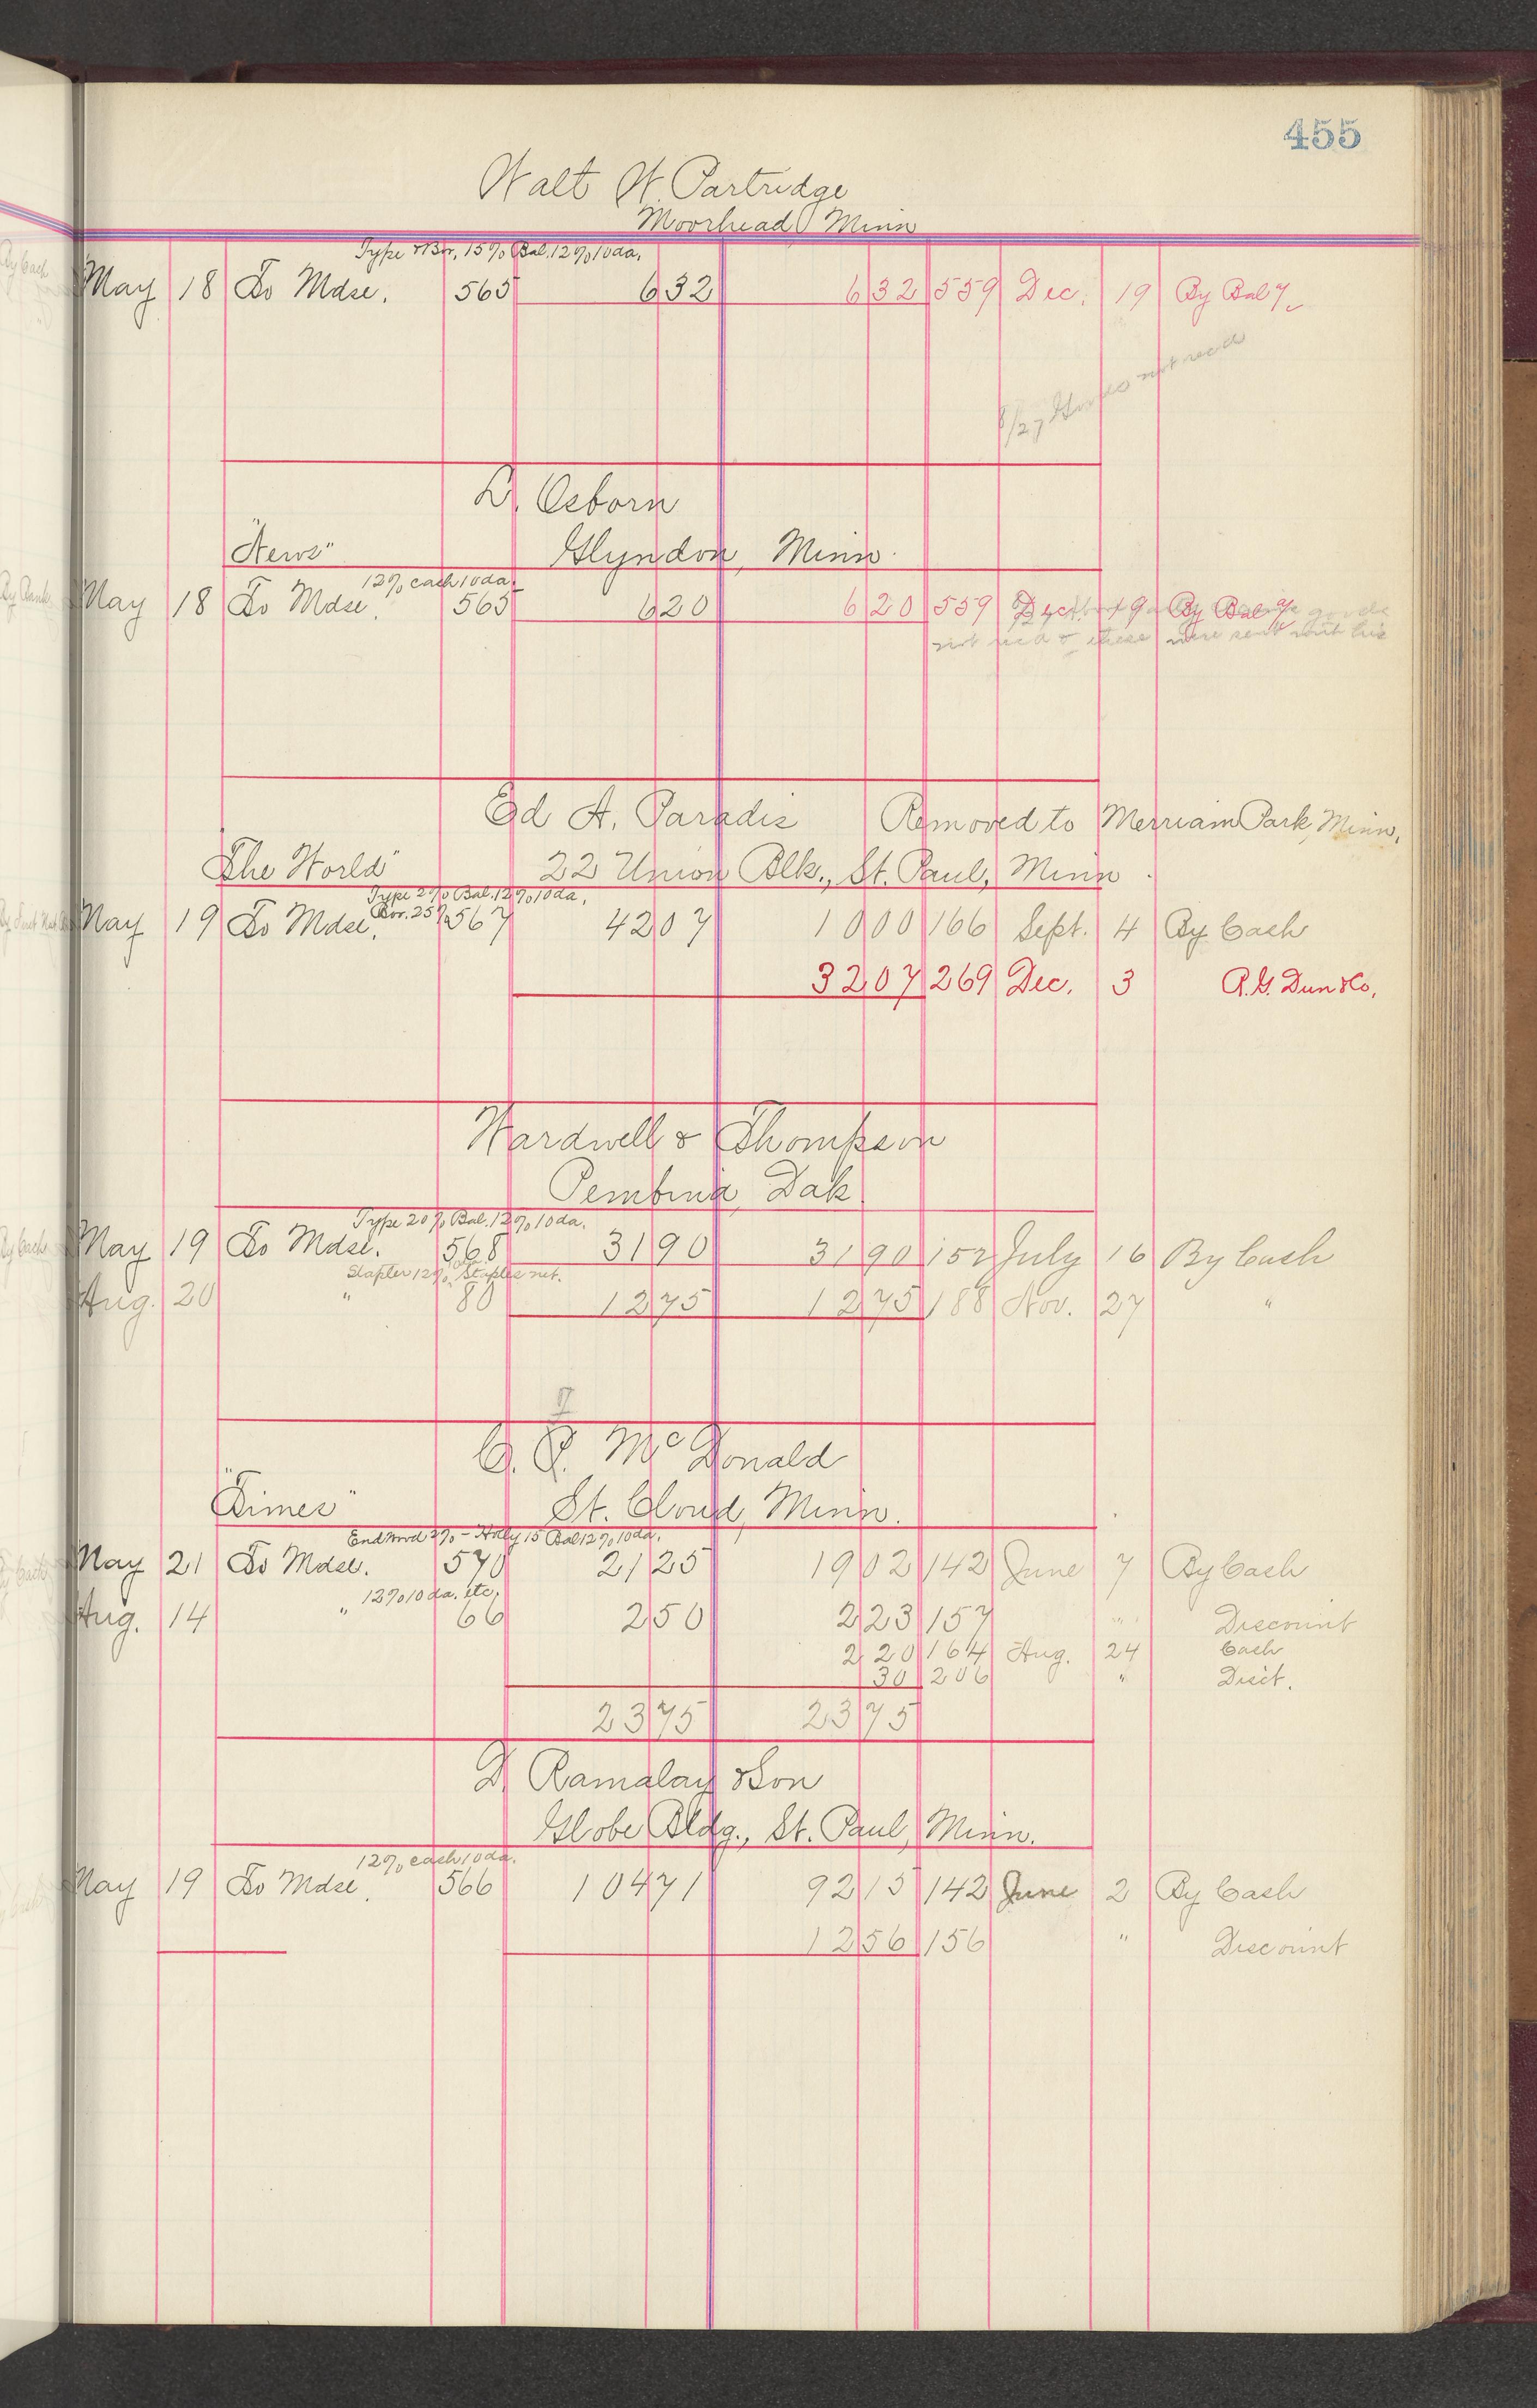 455
Walt W. Partridge
Moorhead Minn
Type & Bor. 15% Bal. 12% 10 da.
May 18 To Mdse. 565 6 32 6 32 559 Dec. 19 By Bal 7
8/27 Goods not rec'd
D. Osborn
"News" Glyndon, Minn.
12% each 10 da.
May 18 To Mdse. 565 6 20 6 20 559 Dec. 19 By Bal 7
goods
not rec'd & these were sent
Ed A. Paradis Removed to Merriam Park, Minn.
"The World" 22 Union Blk., St. Paul, Minn.
Type 2% Bal. 12% 10 da.
Bor. 25%
May 19 To Mdse. 567 42 07 10 00 166 Sept. 4 By Cash
32 07 269 Dec. 3 R. G. Dun & Co.
Wardwell & Thompson
Pembina, Dak.
Type 20% Bal. 12% 10 da.
May 19 To Mdse. 568 31 90 31 90 152 July 16 By Cash
Stapler 12% Staples net.
Aug. 20 " 80 12 75 12 75 188 Nov. 27 "
C. F. McDonald
"Times" St. Cloud, Minn.
May 21 To Mdse. 570 21 25 19 02 142 June 7 By Cash
12% 10 da. etc.
Aug. 14 " 66 2 50 2 23 157 " Discount
2 20 164 Aug. 24 Cash
30 206 " Disct.
23 75 23 75
D. Ramalay & Son
Globe Bldg., St. Paul, Minn.
12% each 10 da.
May 19 To Mdse. 566 104 71 92 15 142 June 2 By Cash
12 56 156 " Discount